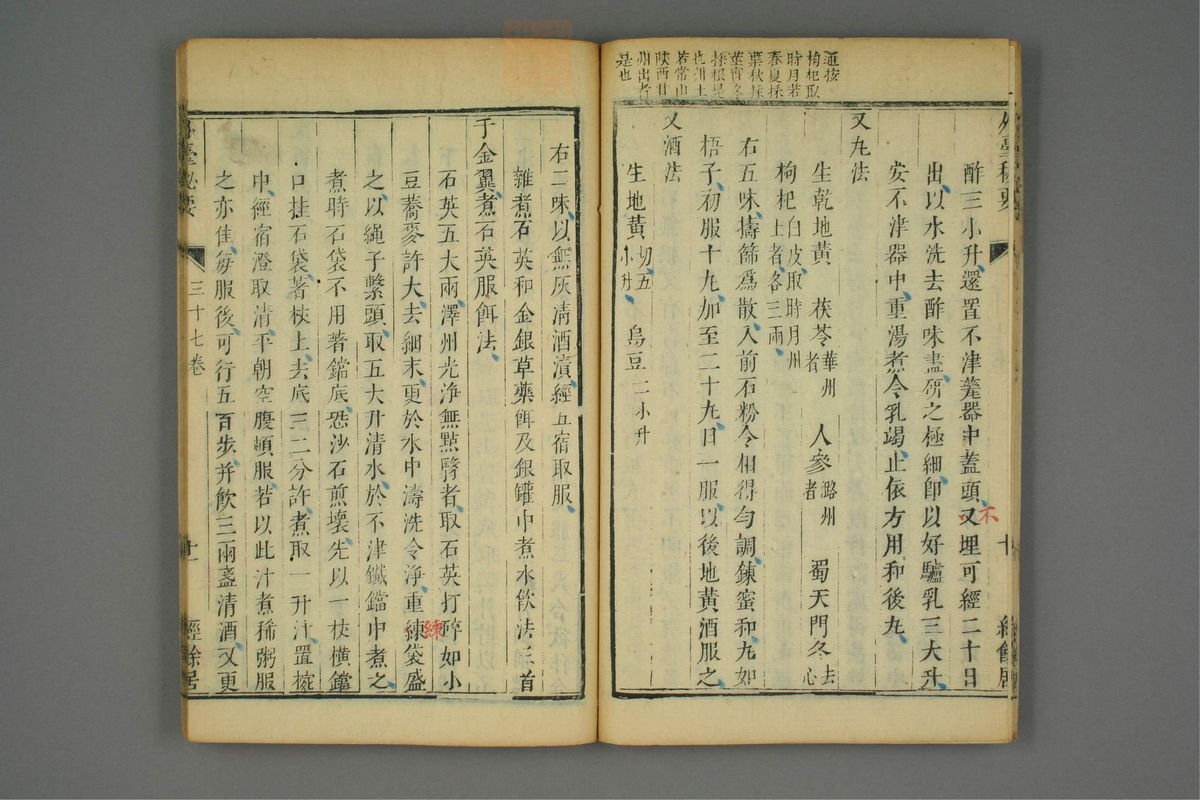 通按
枸杞取
時月若
春夏採
葉秋採
莖實冬
採根是
也州土
若常山
陝西甘
州出者
是也
外臺秘要
十
經餘居
酢三小升還置不津甕器中蓋頭又埋可經二十日
不
出以水洗去酢味盡研之極細卽以好驢乳三大升
安不津器中重湯煮令乳竭止依方用和後丸
又丸法
生乾地黃 茯苓華州者 人參潞州者 蜀天門冬去心
枸杞白皮取時月州土者各三兩
右五味擣篩爲散入前石粉令相得勻調鍊蜜和丸如
梧子初服十丸加至二十九日一服以後地黃酒服之
又酒法
生地黃切五小升 烏豆二小升
右二味以無灰清酒漬經五宿取服
雜煮石英和金銀草藥餌及銀罐中煮水飲法三首
于金翼煮石英服餌法
石英五大兩澤州光淨無點翳者取石英打碎如小
豆蕎麥許大去細末更於水中濤洗令淨重練袋盛
練
之以繩子繫頭取五大升清水於不津鐵鐺中煮之
煮時石袋不用著鐺底恐沙石煎壞先以一杖橫鐺
口挂石袋著杖上去底三二分許煮取一升汁置椀
中經宿澄取清平朝空腹頓服若以此汁煮稀粥服
之亦佳每服後可行五百步幷飲三兩盞清酒又更
外臺秘要
三十七卷
十一
經餘居